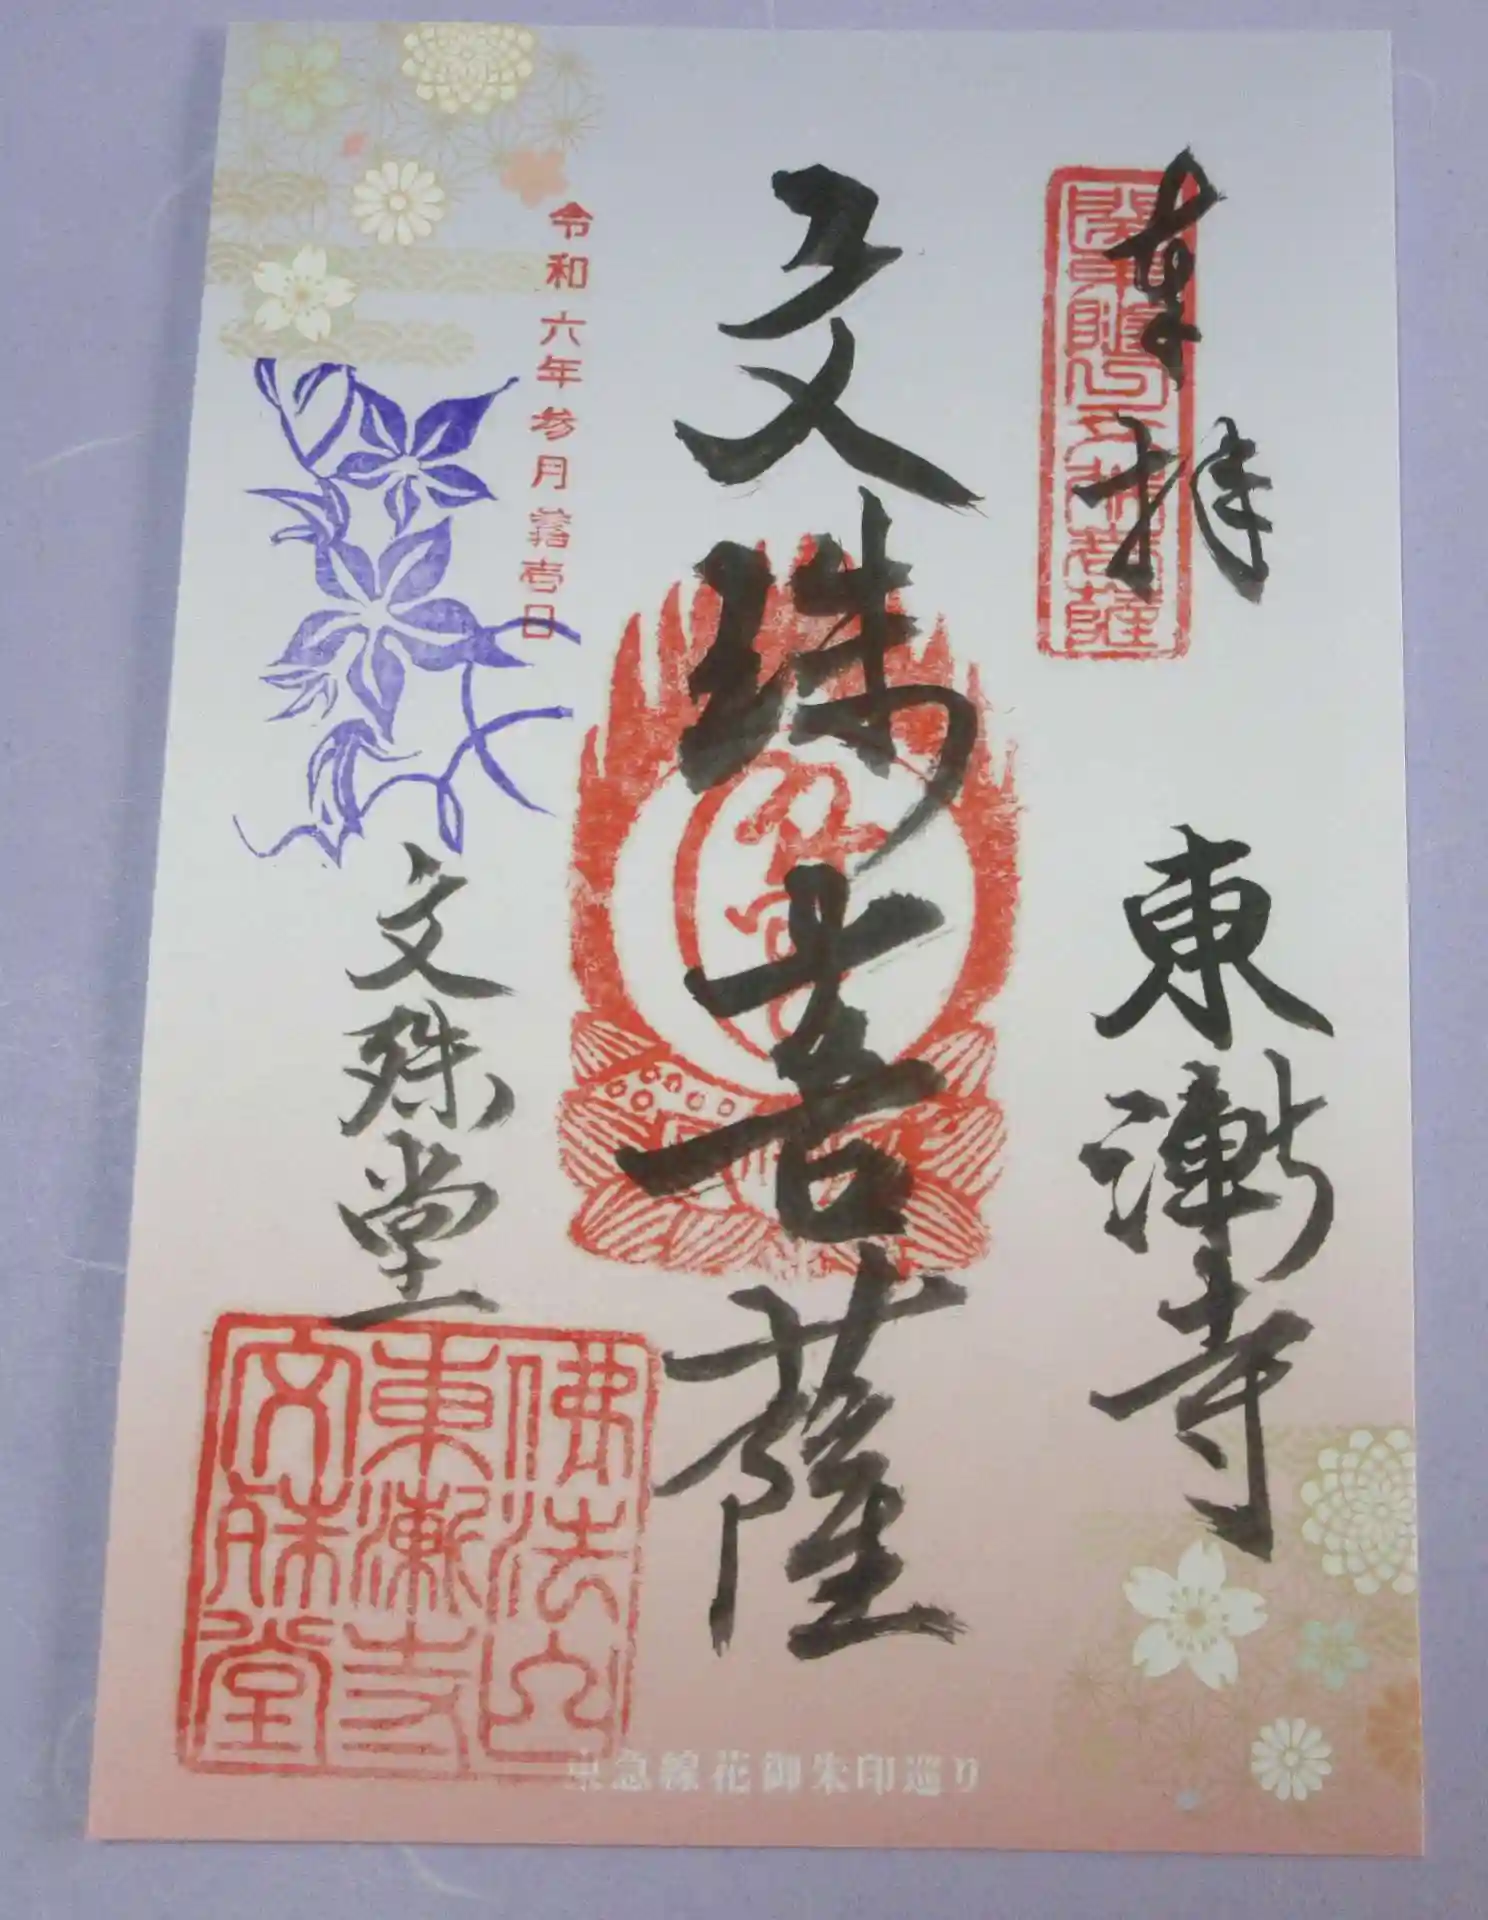 奉拝
東漸寺
文殊菩薩
文殊菩薩
令和六年参月拾壱日
文殊堂
佛法山
東漸寺
文殊堂
東急線花御朱印巡り